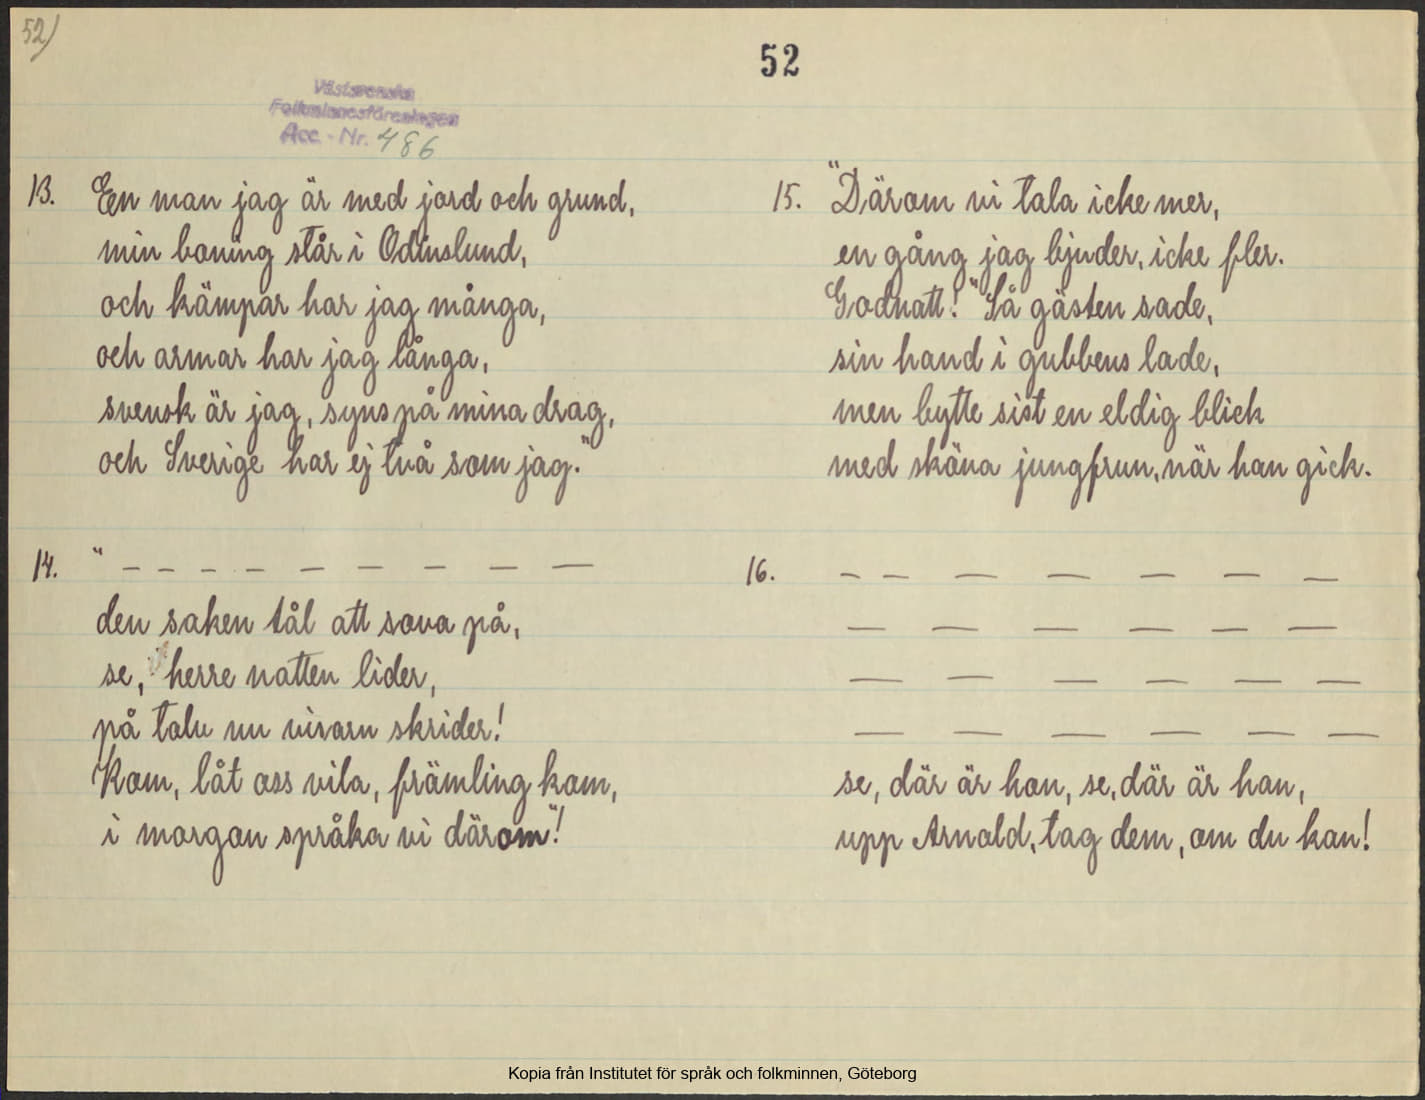 52)
52
Västsvenska
Folkminnesföreningen
Acc. - Nr. 486
13. En man jag är med jord och grund,
min boning står i Odinslund,
och kämpar har jag många,
och armar har jag långa,
svensk är jag, syns på mina drag,
och Sverige har ej två som jag."
14. " — — — — — — — — —
den saken tål att sova på,
se, herre natten lider,
på tolv nu visarn skrider!
Kom, låt oss vila, främling kom,
i morgon språka vi därom"!
15. "Därom vi tala icke mer,
en gång jag bjuder, icke fler.
Godnatt!" Så gästen sade,
sin hand i gubbens lade,
men bytte sist en eldig blick
med sköna jungfrun, när han gick.
16. — — — — — — —
— — — — — —
— — — — — —
— — — — — —
se, där är han, se, där är han,
upp Arnold, tag dem, om du kan!
Kopia från Institutet för språk och folkminnen, Göteborg